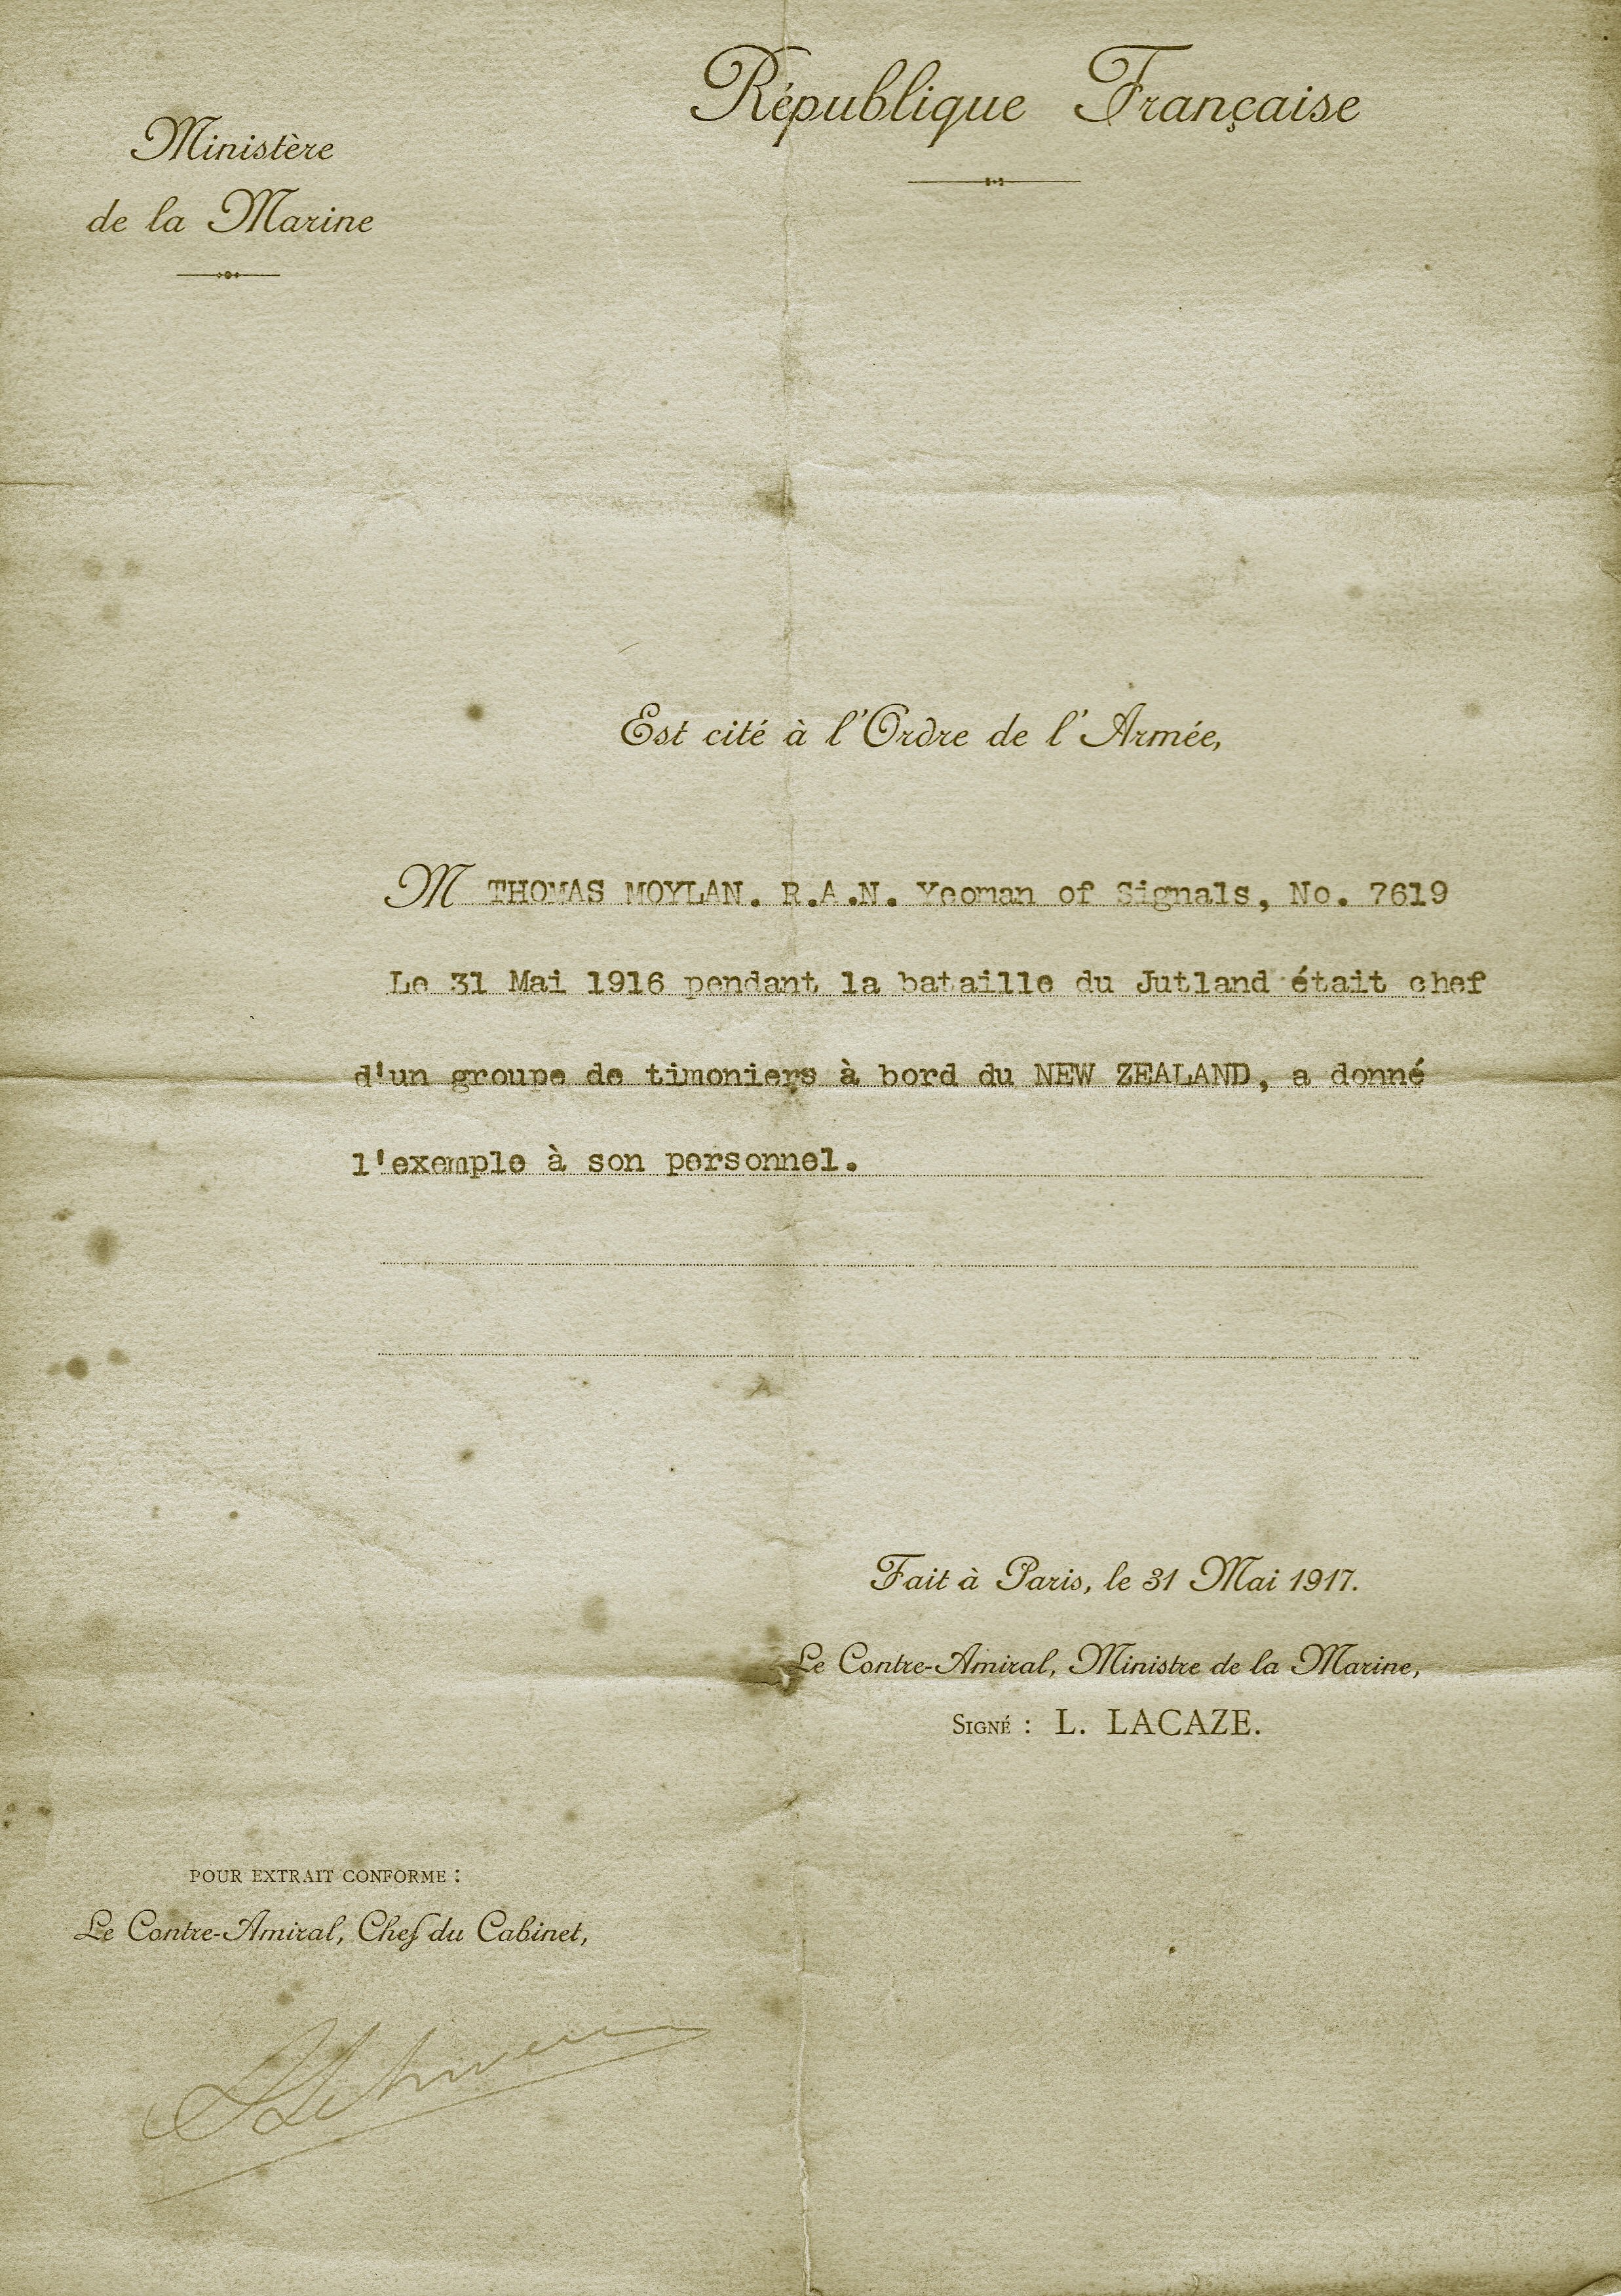 République Française
Ministère
de la Marine
Est cité à l'Ordre de l'Armée,
M THOMAS MOYLAN. R.A.N. Yeoman of Signals, No. 7619
Le 31 Mai 1916 pendant la bataille du Jutland était chef
d'un groupe de timoniers à bord du NEW ZEALAND, a donné
l'exemple à son personnel.
Fait à Paris, le 31 Mai 1917.
Le Contre-Amiral, Ministre de la Marine,
SIGNÉ : L. LACAZE.
POUR EXTRAIT CONFORME :
Le Contre-Amiral, Chef du Cabinet,